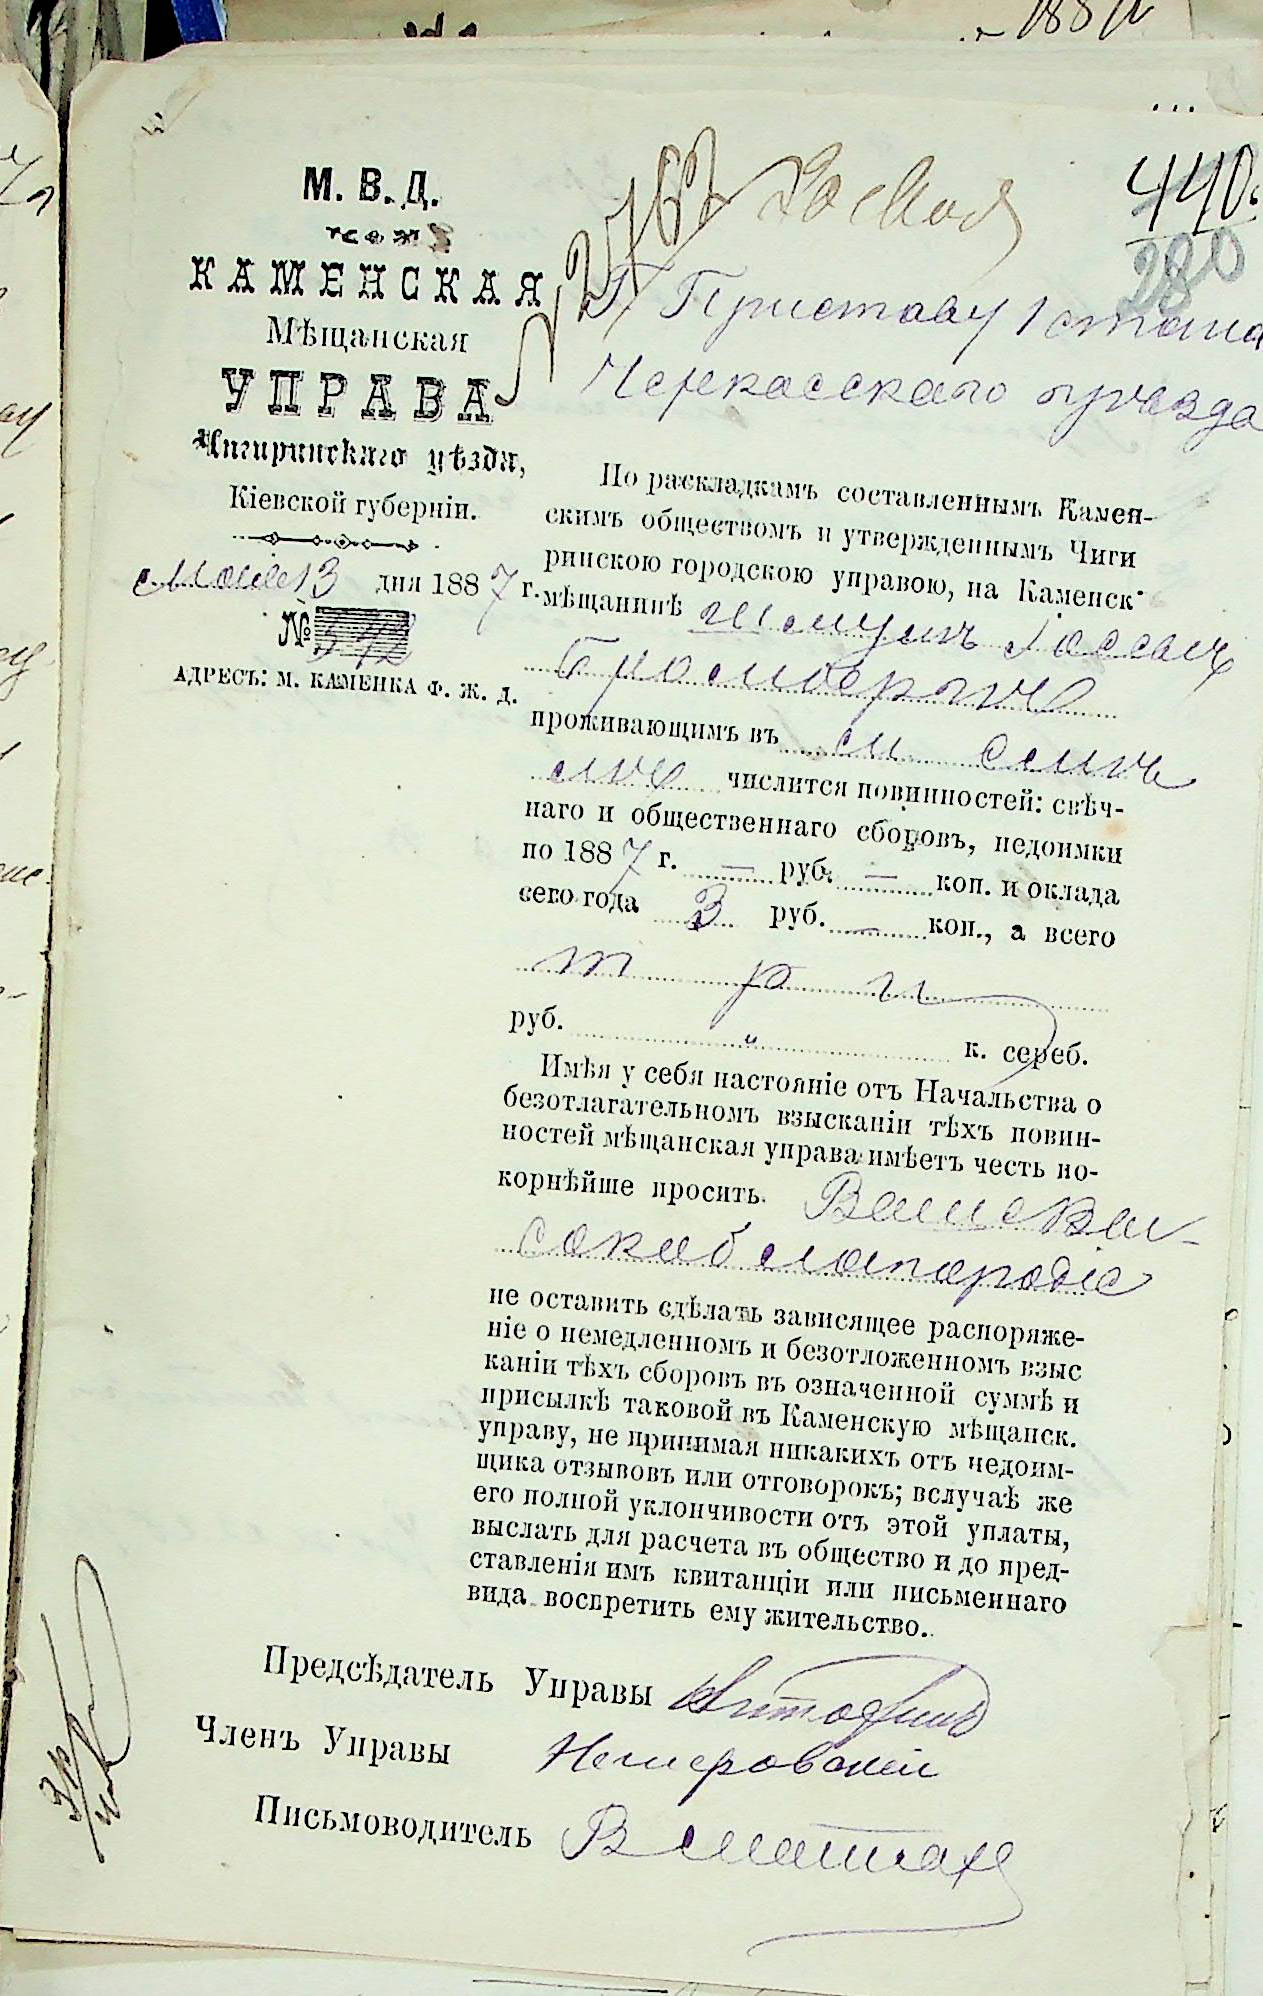 188
440.
280
№ 2762
20 Мая
М. В. Д.
КАМЕНСКАЯ
Мѣщанская
УПРАВА
Чигиринскаго уѣзда,
Кіевской губерніи.
13 дня 1887 г.
№ 542
АДРЕСЪ: М. КАМЕНКА Ф. Ж. Д.
Г. Приставу 1 стана
Черкасскаго уѣзда
По раскладкамъ составленнымъ Камен-
скимъ обществомъ и утвержденнымъ Чиги
ринскою городскою управою, на Каменск
мѣщанинѣ
проживающимъ въ
числится повинностей: свѣч-
наго и общественнаго сборовъ, недоимки
по 1887 г. — руб. — коп. и оклада
сего года 3 руб. — коп., а всего
три
руб. " к. сереб.
Имѣя у себя настояніе отъ Начальства о
безотлагательномъ взысканіи тѣхъ повин-
ностей мѣщанская управа имѣетъ честь по-
корнѣйше просить Ваше Вы-
сокоблагородіе
не оставить сдѣлать зависящее распоряже-
ніе о немедленномъ и безотложенномъ взыс
каніи тѣхъ сборовъ въ означенной суммѣ и
присылкѣ таковой въ Каменскую мѣщанск.
управу, не принимая никакихъ отъ недоим-
щика отзывовъ или отговорокъ; вслучаѣ же
его полной уклончивости отъ этой уплаты,
выслать для расчета въ общество и до пред-
ставленія имъ квитанціи или письменнаго
вида воспретить ему жительство.
Предсѣдатель Управы
Членъ Управы
Письмоводитель